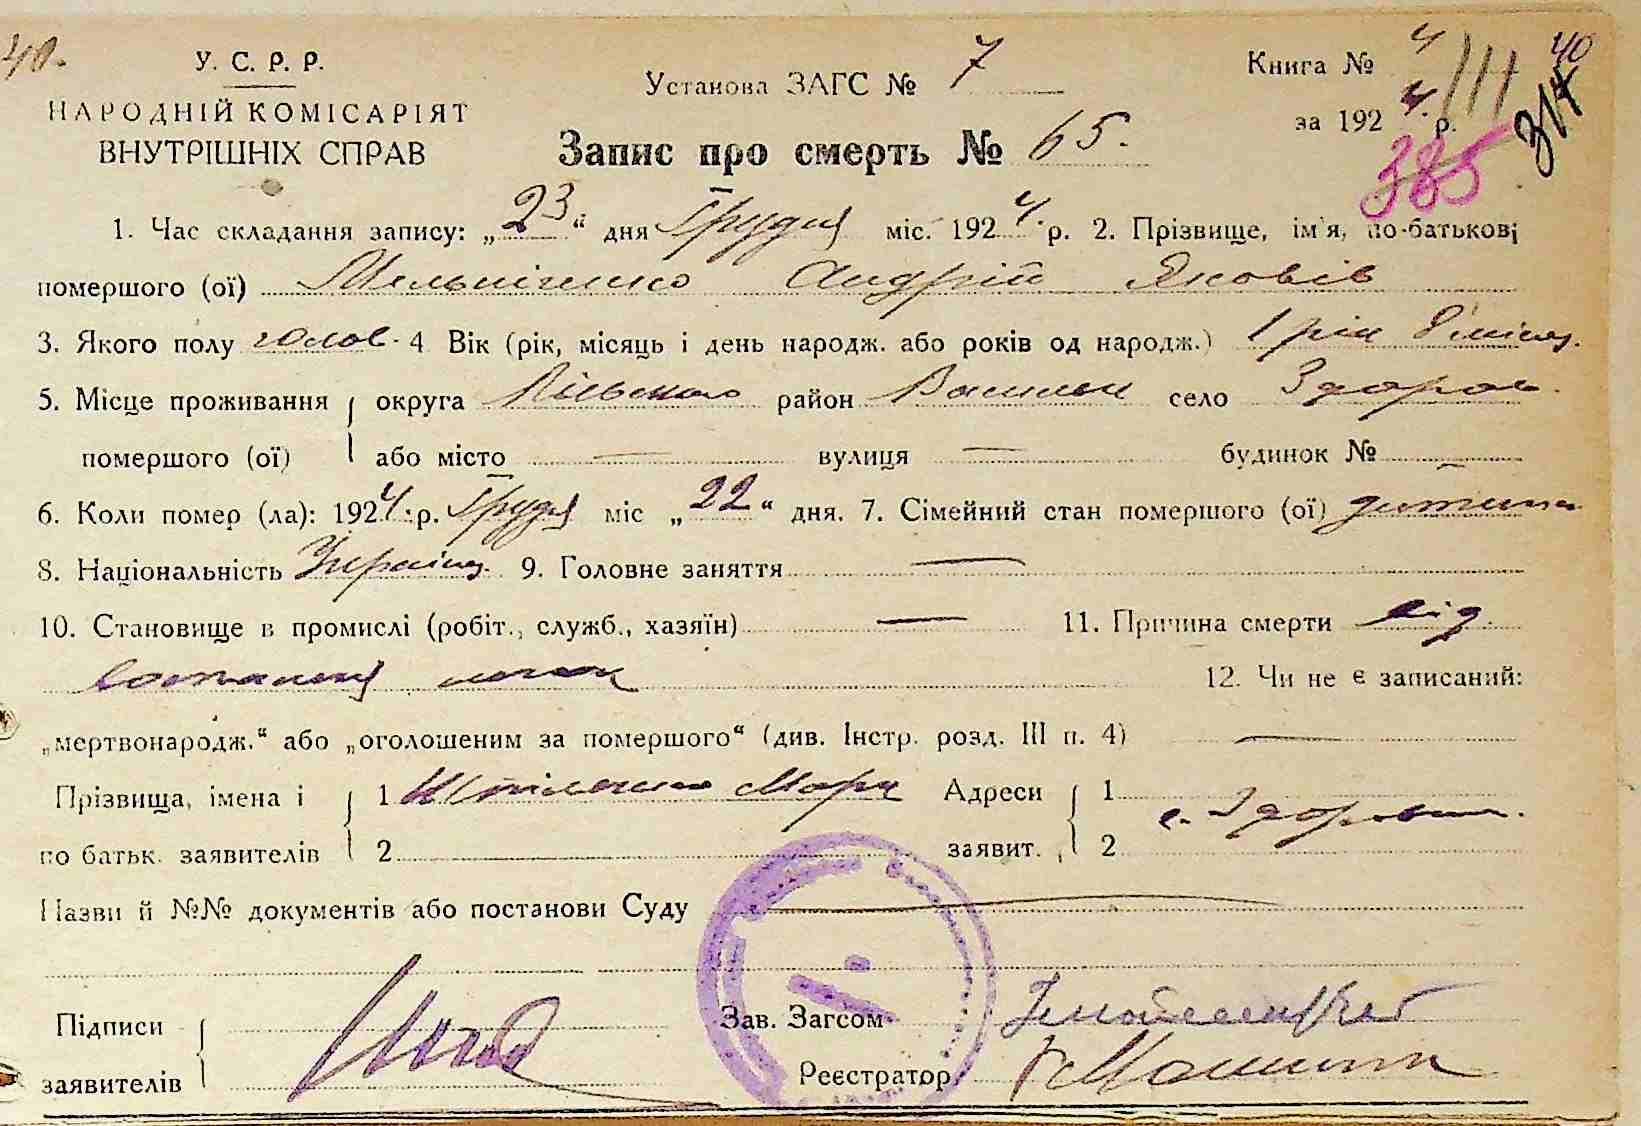 40. У. С. Р. Р. Установа ЗАГС № 7 Книга № 4 40
НАРОДНІЙ КОМІСАРІЯТ за 1924. р. 314
ВНУТРІШНІХ СПРАВ Запис про смерть № 65. 385
1. Час складання запису: „23“ дня Грудня міс. 1924. р. 2. Прізвище, ім'я, по-батькові
помершого (ої) Мельніченко Андрій Яковів
3. Якого полу чолов. 4 Вік (рік, місяць і день народж. або років од народж.) 1 рік 8 місяц.
5. Місце проживання округа Київсько район Васильк село Здоров.
помершого (ої) або місто — вулиця — будинок № —
6. Коли помер (ла): 1924. р. Грудня міс „22“ дня. 7. Сімейний стан помершого (ої) дитина
8. Національність Україн. 9. Головне заняття —
10. Становище в промислі (робіт., служб., хазяїн) — 11. Причина смерти від
легок 12. Чи не є записаний:
„мертвонародж.“ або „оголошеним за помершого“ (див. Інстр. розд. III п. 4) —
Прізвища, імена і 1 Марк Адреси 1 с. Здоровка.
по батьк. заявителів 2 заявит. 2
Назви й №№ документів або постанови Суду —
Підписи Зав. Загсом
заявителів Реєстратор